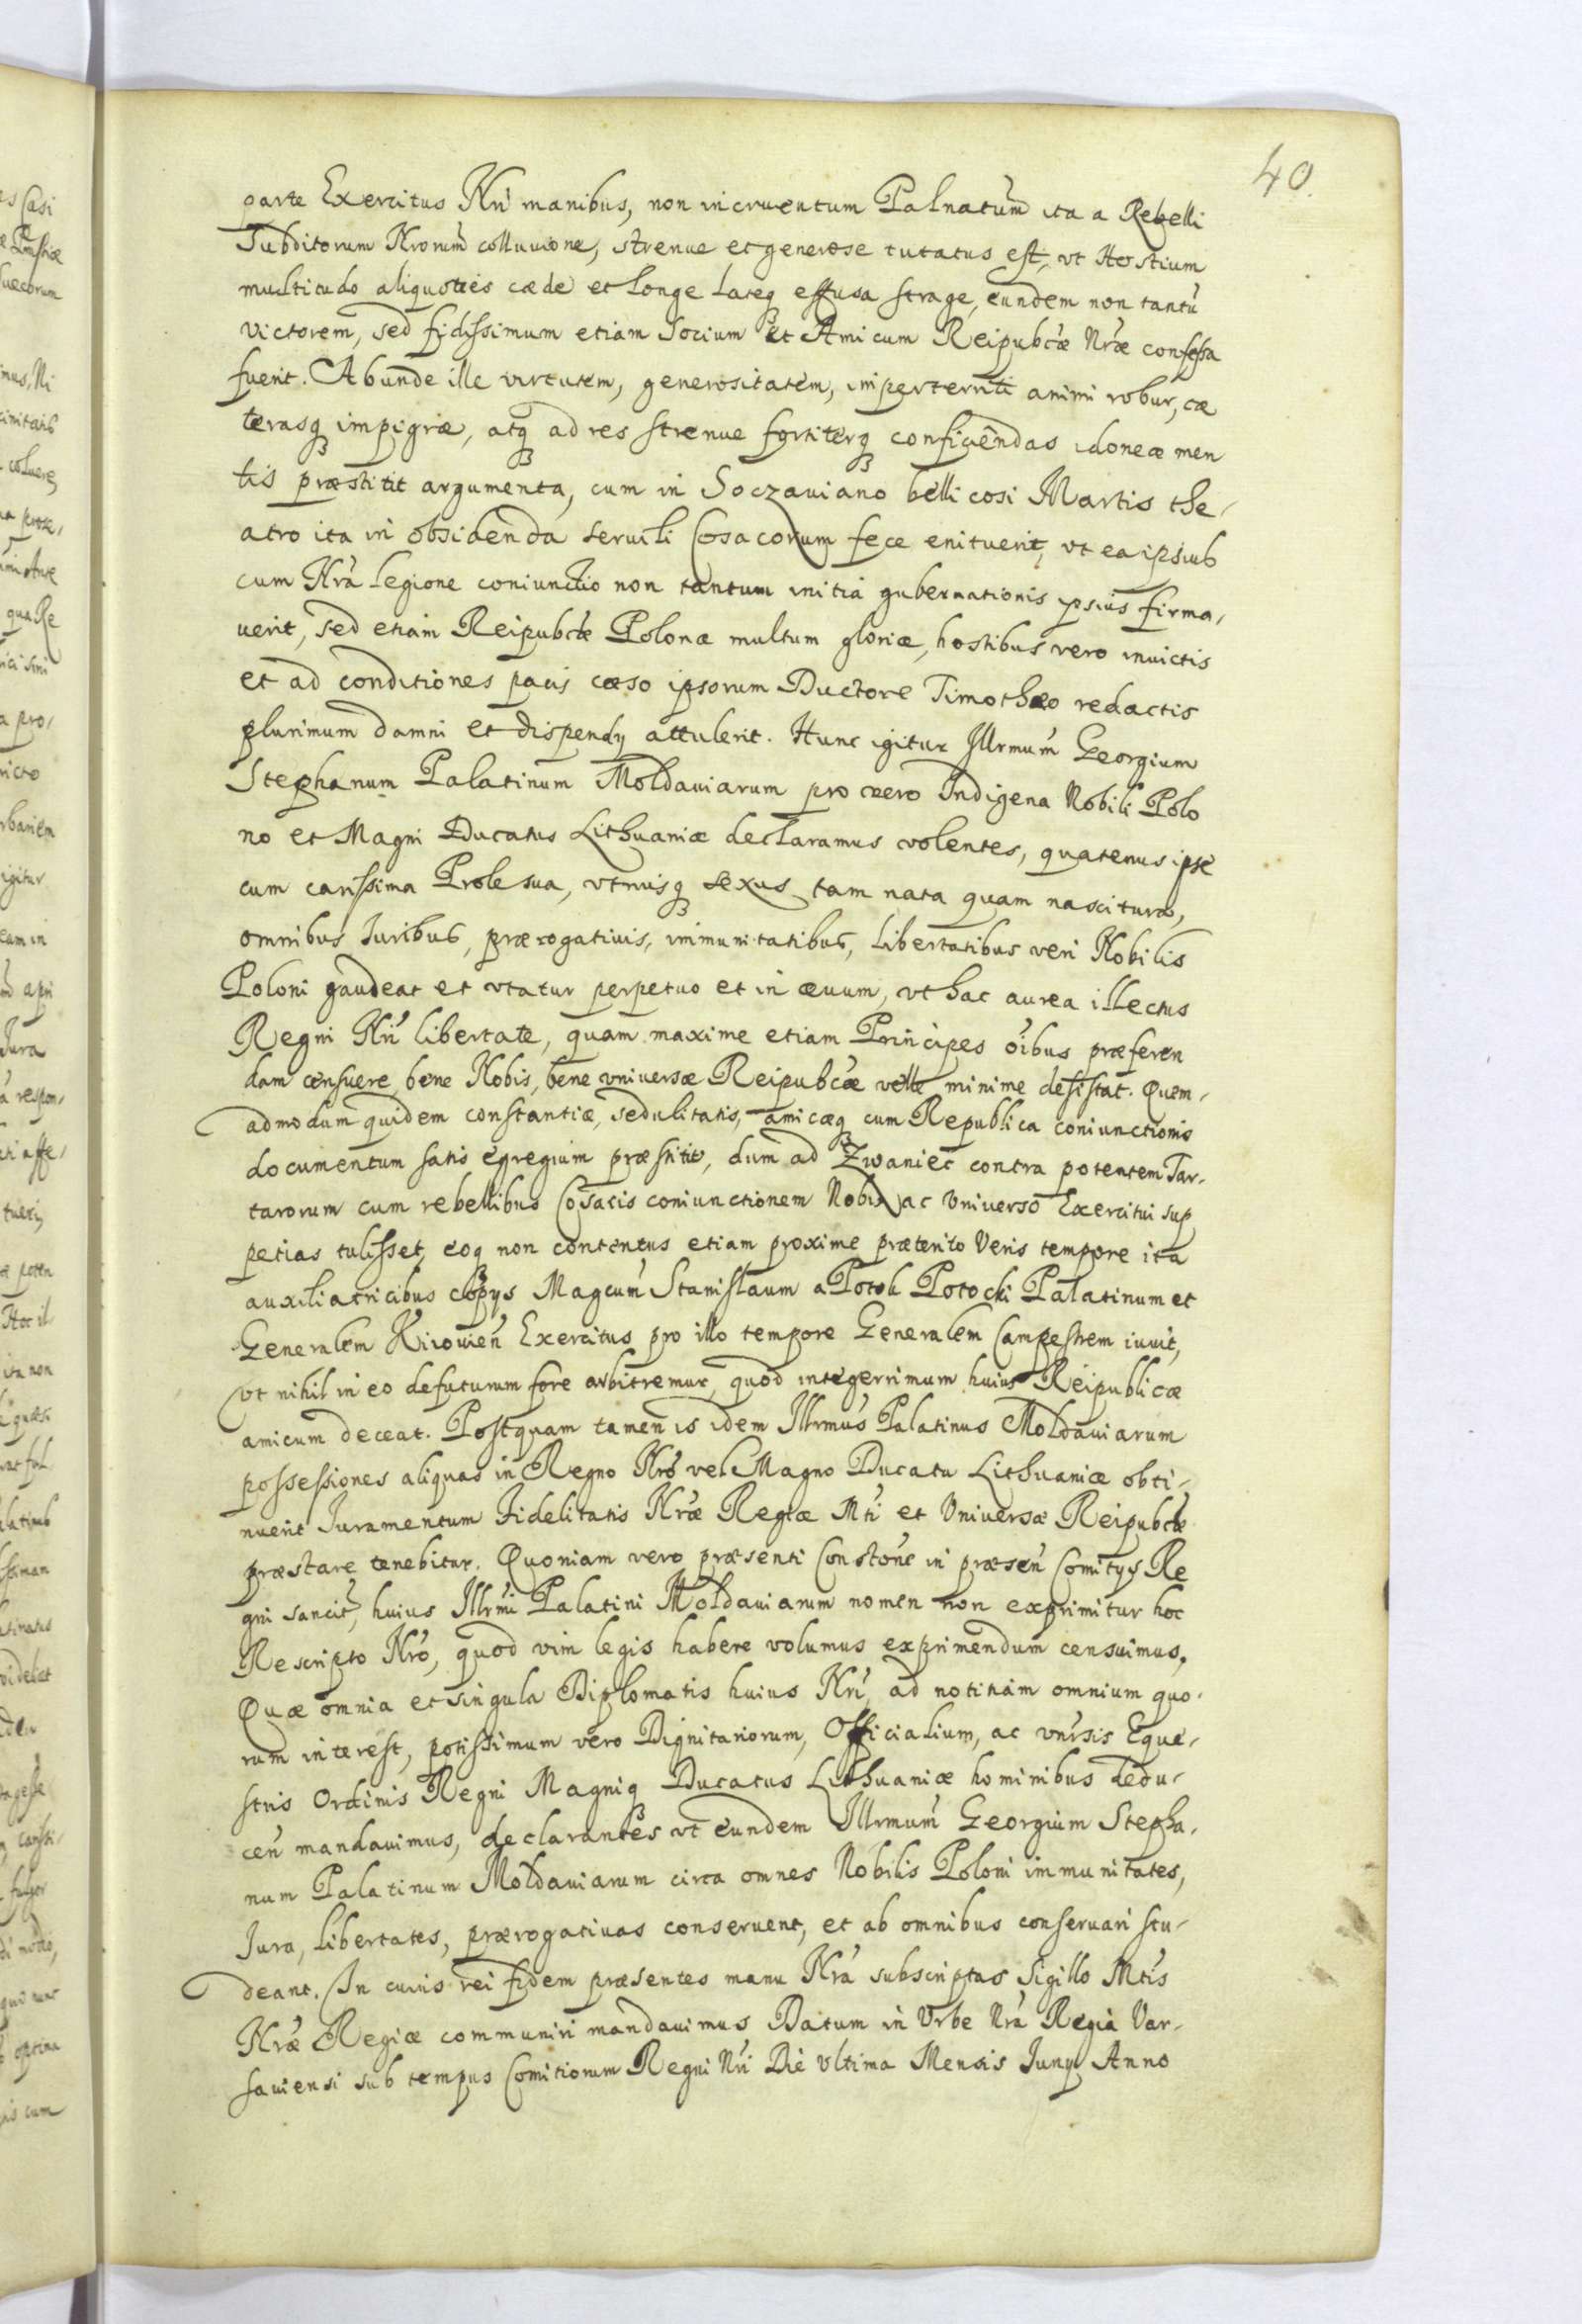 40.
parte Exercitus Nri manibus, non incruentum Palnatum ita a Rebelli
Subditorum Nrorum colluvione, strenue et generose tutatus est, vt Hostium
multitudo aliquoties cæde et longe lateq effusa strage, eundem non tantu
victorem, sed fidissimum etiam Socium et Amicum Reipubcæ Nræ confessa
fuerit. Abunde ille virtutem, generositatem, imperterriti animi robur, cæ
terasq impigræ, atq ad res strenue fortiterq conficiendas idoneæ men
tis præstitit argumenta, cum in Soczauiano bellicosi Martis the-
atro ita in obsidenda seruili Cosacorum fece enituerit, vt ea ipsius
cum Nra legione coniunctio non tantum initia gubernationis ipsius firma-
uerit, sed etiam Reipubcæ Polonæ multum gloriæ, hostibus vero inuictis
et ad conditiones pacis cæso ipsorum Ductore Timothæo redactis
plurimum damni et dispendy attulerit. Hunc igitur Illrmum Georgium
Stephanum Palatinum Moldauiarum pro vero Indigena Nobili Polo
no et Magni Ducatus Lithuaniæ declaramus volentes, quatenus ipse
cum carissima Prole sua, vtriusq sexus tam nata quam nascitura,
omnibus Iuribus, prærogatiuis, immunitatibus, libertatibus veri Nobilis
Poloni gaudeat et vtatur perpetuo et in æuum, vt hac aurea illectus
Regni Nri libertate, quam maxime etiam Principes oibus præferen
dam censuere, bene Nobis, bene vniversæ Reipubcæ velle minime desistat. Quem-
admodum quidem constantiæ, sedulitatis, amicæq cum Republica coniunctionis
documentum satis egregium præstitit, dum ad Zwaniec contra potentem Tar-
tarorum cum rebellibus Cosacis coniunctionem Nobis ac Vniverso Exercitui sup
petias tulisset, eoq non contentus etiam proxime præterito Veris tempore ita
auxiliatricibus copys Magcum Stanislaum a Potok Potocki Palatinum et
Generalem Kiiouien Exercitus pro illo tempore Generalem Campestrem iuuit,
vt nihil in eo defuturum fore arbitremur, quod integerrimum huius Reipublicæ
amicum deceat. Postquam tamen is idem Illrmus Palatinus Moldauiarum
possessiones aliquas in Regno Nro vel Magno Ducatu Lithuaniæ obti-
nuerit Iuramentum Fidelitatis Nræ Regiæ Mti et Vniversæ Reipubcæ
præstare tenebitur. Quoniam vero præsenti Constone in præsen Comitys Re
gni sancit, huius Illrmi Palatini Moldauiarum nomen non exprimitur hoc
Rescripto Nro, quod vim legis habere volumus exprimendum censuimus.
Quæ omnia et singula Diplomatis huius Nri, ad notitiam omnium quo-
rum interest, potissimum vero Dignitariorum, Officialium, ac vnrsis Eque-
stris Ordinis Regni Magniq Ducatus Lithuaniæ hominibus dedu-
cen mandauimus, declarantes vt eundem Illrmum Georgium Stepha-
num Palatinum Moldauiarum circa omnes Nobilis Poloni immunitates,
Iura, libertates, prærogatiuas conseruent, et ab omnibus conseruari stu-
deant. In cuius rei fidem præsentes manu Nra subscriptas Sigillo Mtis
Nræ Regiæ communiri mandauimus Datum in Vrbe Nra Regia Var-
sauiensi sub tempus Comitiorum Regni Nri Die Vltima Mensis Iuny Anno